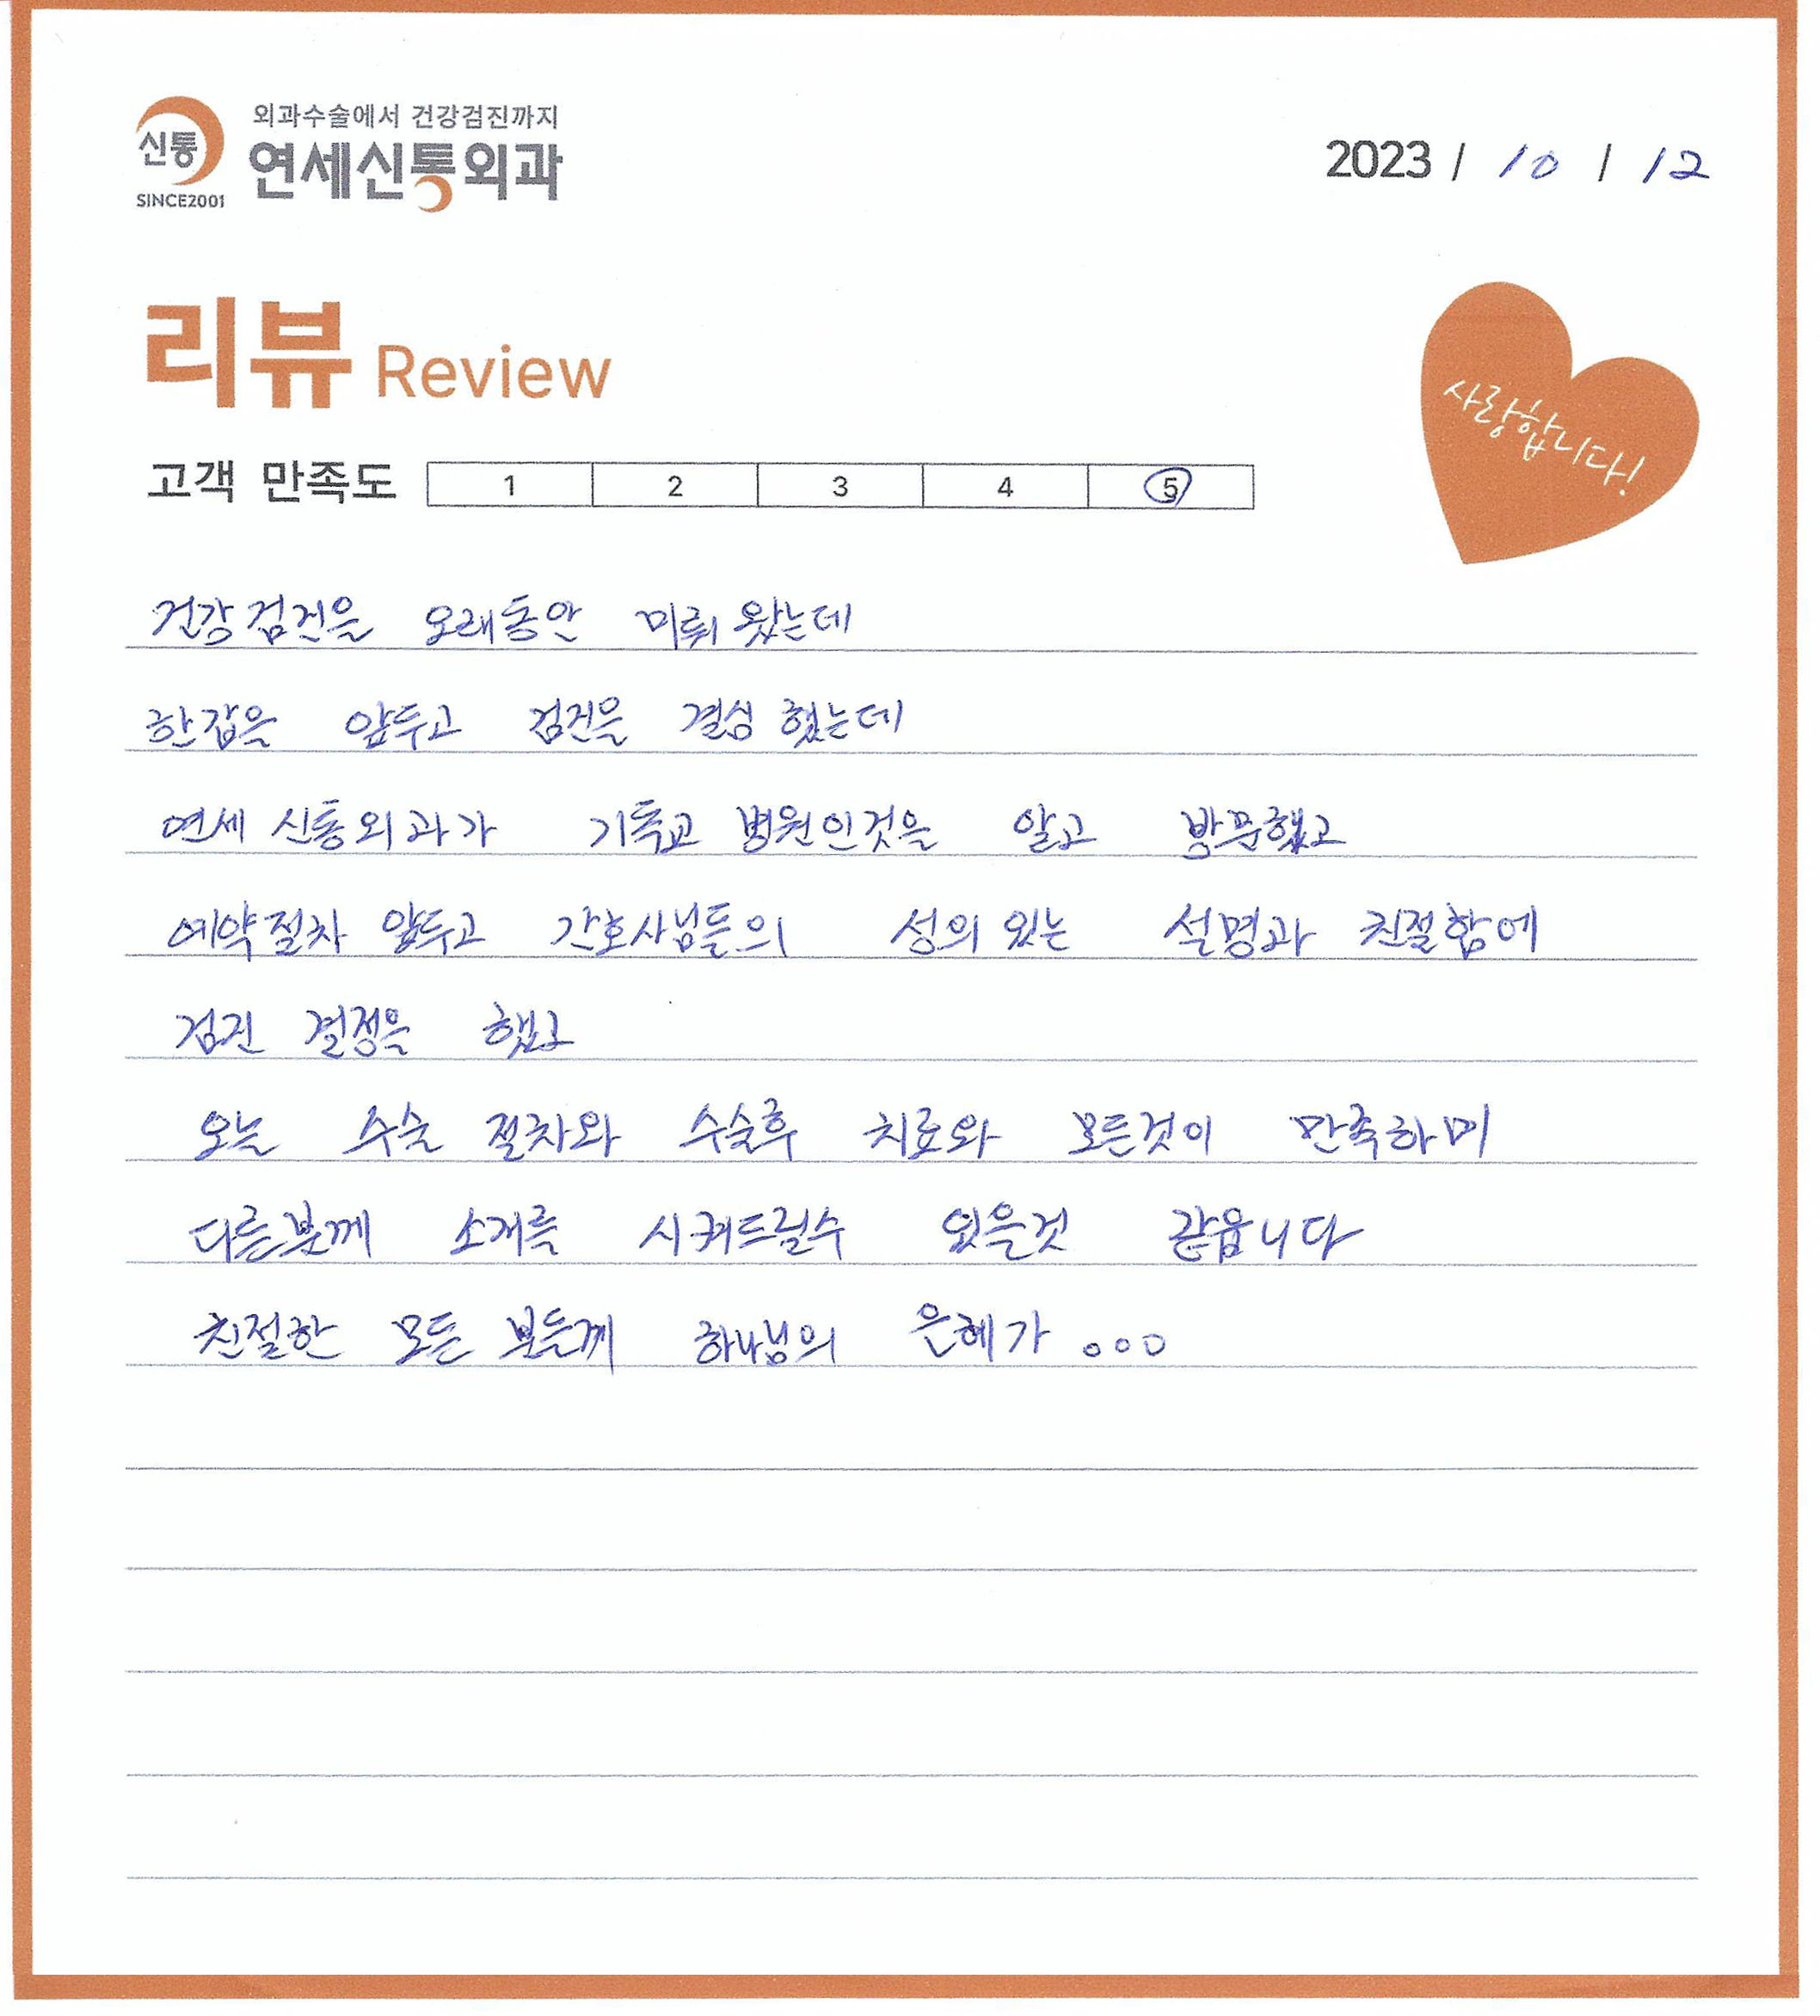 외과수술에서 건강검진까지
신통
연세신통외과
SINCE2001
2023 / 10 / 12
리뷰 Review
사랑합니다!
고객 만족도 1 2 3 4 5
건강검진을 오래동안 미뤄 왔는데
한갑을 앞두고 검진을 결심 했는데
연세 신통외과가 기독교 병원인것을 알고 방문했고
예약절차 앞두고 간호사님들의 성의 있는 설명과 친절함에
검진 결정을 했고
오늘 수술 절차와 수술후 치료와 모든것이 만족하며
다른분께 소개를 시켜드릴수 있을것 같읍니다
친절한 모든 분들께 하나님의 은혜가 。。。